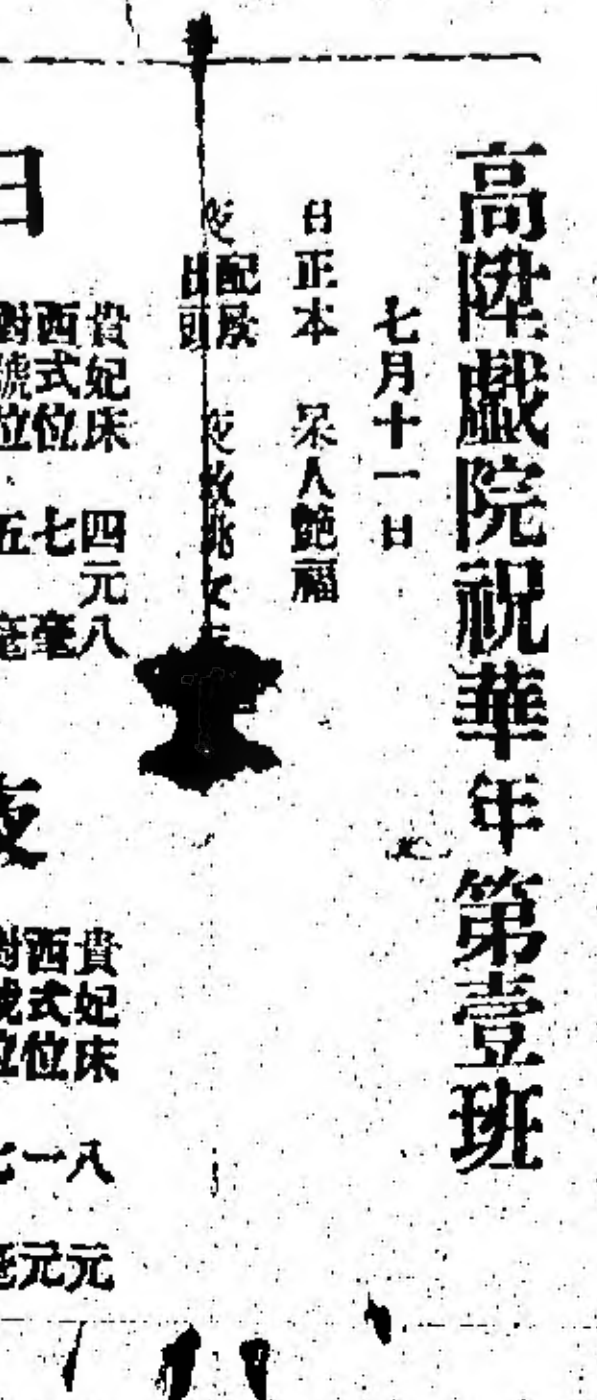 高陞戲院祝華年第壹班
七月十一日
日正本 呆人艶福
夜 配景 夜救兆女
出頭
日
貴妃床 四元八
西式位 七毫
對號位 五毫
夜
貴妃床 八元
西式位 一元
對號位 七毫